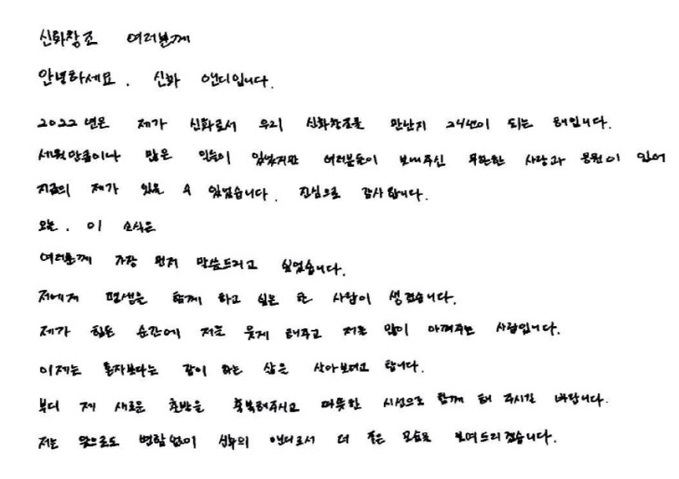 신화창조 여러분께
안녕하세요. 신화 앤디입니다.
2022년은 제가 신화로서 우리 신화창조를 만난지 24년이 되는 해입니다.
세월만큼이나 많은 일들이 있었지만 여러분들이 보내주신 무한한 사랑과 응원이 있어
지금의 제가 있을 수 있었습니다. 진심으로 감사합니다.
오늘. 이 소식은
여러분께 가장 먼저 말씀드리고 싶었습니다.
저에게 평생을 함께 하고 싶은 한 사람이 생겼습니다.
제가 힘든 순간에 저를 웃게 해주고 저를 많이 아껴주는 사람입니다.
이제는 혼자보다는 같이 하는 삶을 살아보려고 합니다.
부디 제 새로운 출발을 축복해주시고 따뜻한 시선으로 함께 해 주시길 바랍니다.
저는 앞으로도 변함없이 신화의 앤디로서 더 좋은 모습으로 보여드리겠습니다.